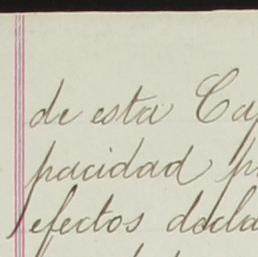 de esta Cap
pacidad p
efectos decla